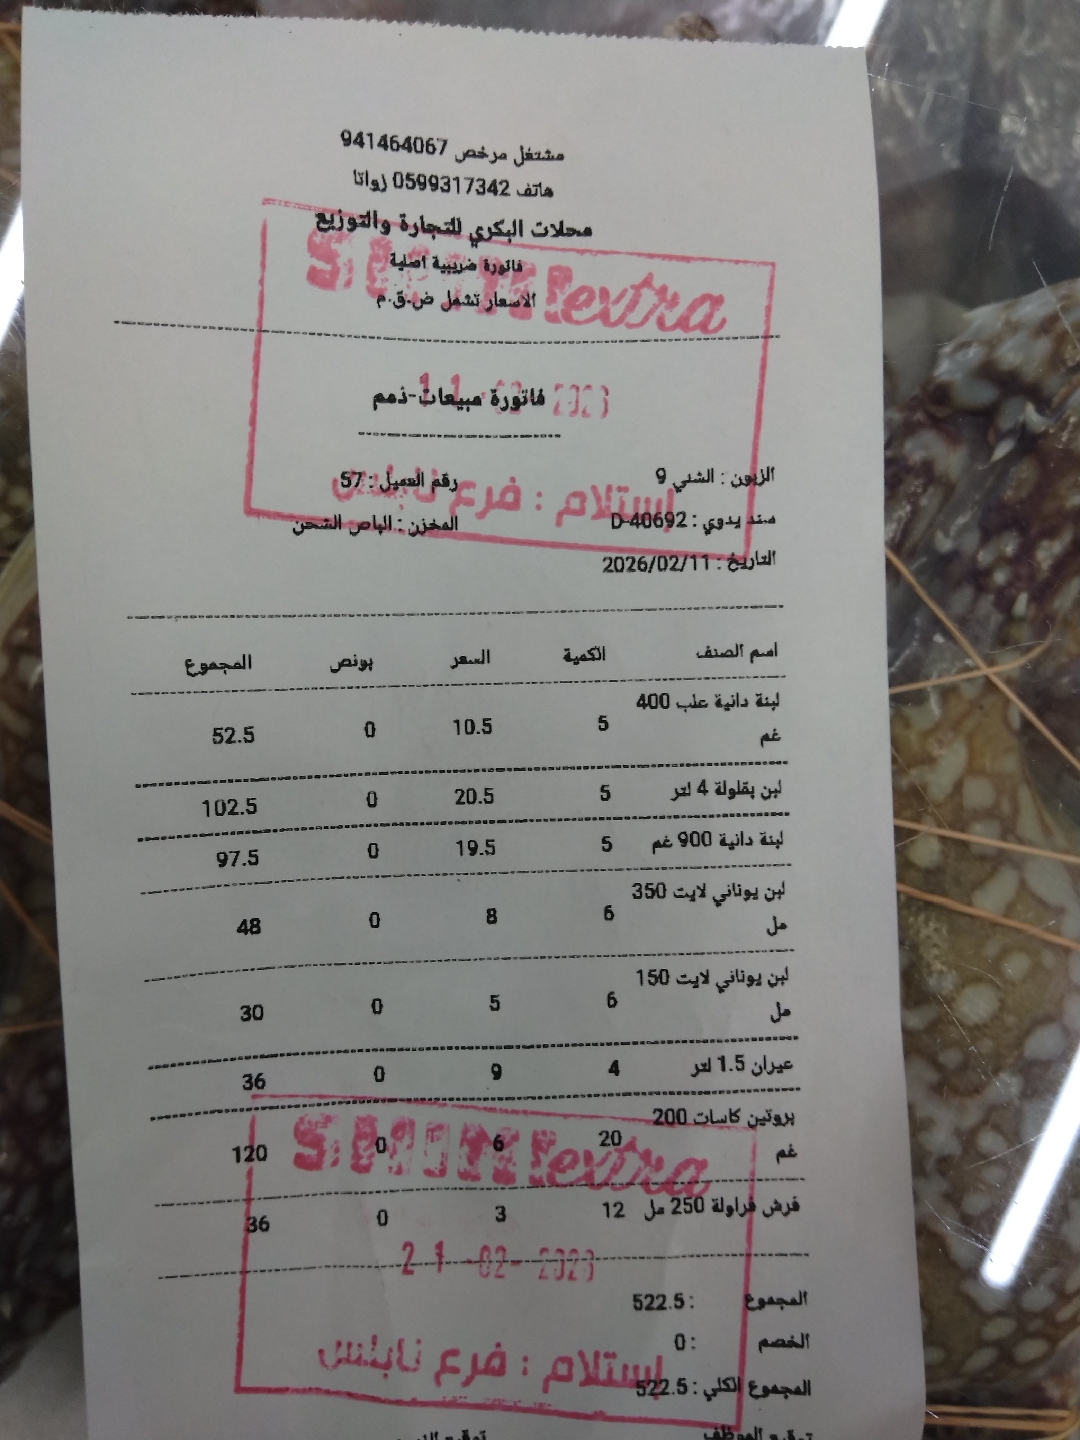 مشتغل مرخص 941464067
هاتف 0599317342 زواتا
محلات البكري للتجارة والتوزيع
فاتورة ضريبية اصلية
الاسعار تشمل ض.ق.م
extra
فاتورة مبيعات-ذمم
11-02-2026
الزبون : الشني 9 رقم العميل : 57
إستلام : فرع نابلس
سند يدوي : D-40692 المخزن : الباص الشحن
التاريخ : 2026/02/11
اسم الصنف الكمية السعر بونص المجموع
لبنة دانية علب 400 غم 5 10.5 0 52.5
لبن بقلولة 4 لتر 5 20.5 0 102.5
لبنة دانية 900 غم 5 19.5 0 97.5
لبن يوناني لايت 350 مل 6 8 0 48
لبن يوناني لايت 150 مل 6 5 0 30
عيران 1.5 لتر 4 9 0 36
بروتين كاسات 200 غم 20 6 0 120
extra
فرش فراولة 250 مل 12 3 0 36
21-02-2026
المجموع : 522.5
الخصم : 0
إستلام : فرع نابلس
المجموع الكلي : 522.5
توقيع الموظف توقيع